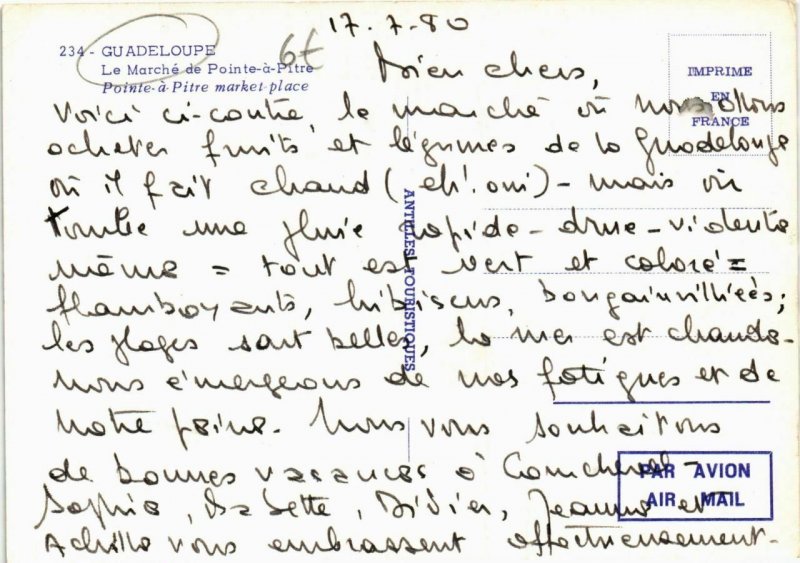 17.7.80
234 - GUADELOUPE
6t
Le Marché de Pointe-à-Pitre
Pointe-à-Pitre market place
IMPRIME
EN
FRANCE
Bien chers,
Voici ci-contre, le marché où nous allons
acheter fruits et légumes de la Guadeloupe
où il fait chaud (eh! oui) - mais où
tombe une pluie rapide - drue - violente
même = tout est vert et coloré =
flamboyants, hibiscus, bougainvilliées;
les plages sont belles, la mer est chaude -
nous émergeons de nos fatigues et de
notre peine. Nous vous souhaitons
de bonnes vacances à Courchevel -
Sophie, Babette, Didier, Jeanne et
Achille vous embrassent affectueusement -
ANTILLES TOURISTIQUES
PAR AVION
AIR MAIL